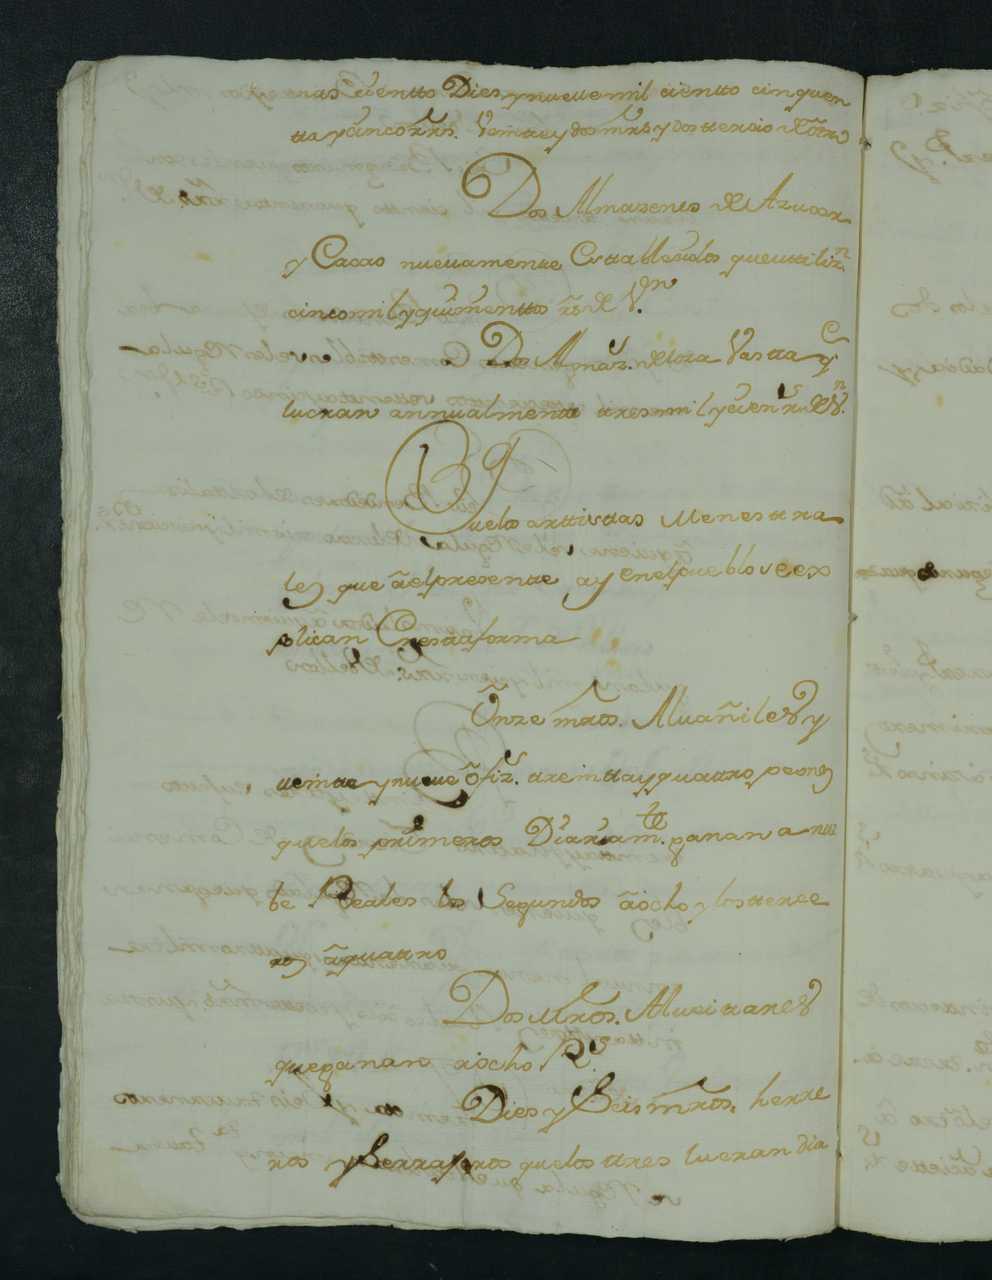 nas Ciento Dies y nueve mil ciento cinquen
tta y cinco rrs. Veintte y dos mrs y dos tercio de ôtro
Dos Almasenes de Azucar
y Cacao nuevamente Establecidos que uttiliz.n
cinco mil y quinienttos rs de V.n
Dos Almaz.s de loza Vastta q.e
lucran annualmente tres mil y cien rs de V.n
Que los arttistas Menestra
les que âel presente ay en el pueblo se ex
plican En esta forma
Ônze mrôs. Alvañiles y
veintte y nueve ôfiz.s treintta y quattro peones
que los primeros Diariam.tte ganan a nue
be Reales los Segundos âôcho y los terce
ros âquattro
Dos Mrôs. Alveitares
que ganan aôcho R.s
Dies y Seis mrôs. herre
ros y Serrajeros que los tres lucran dia